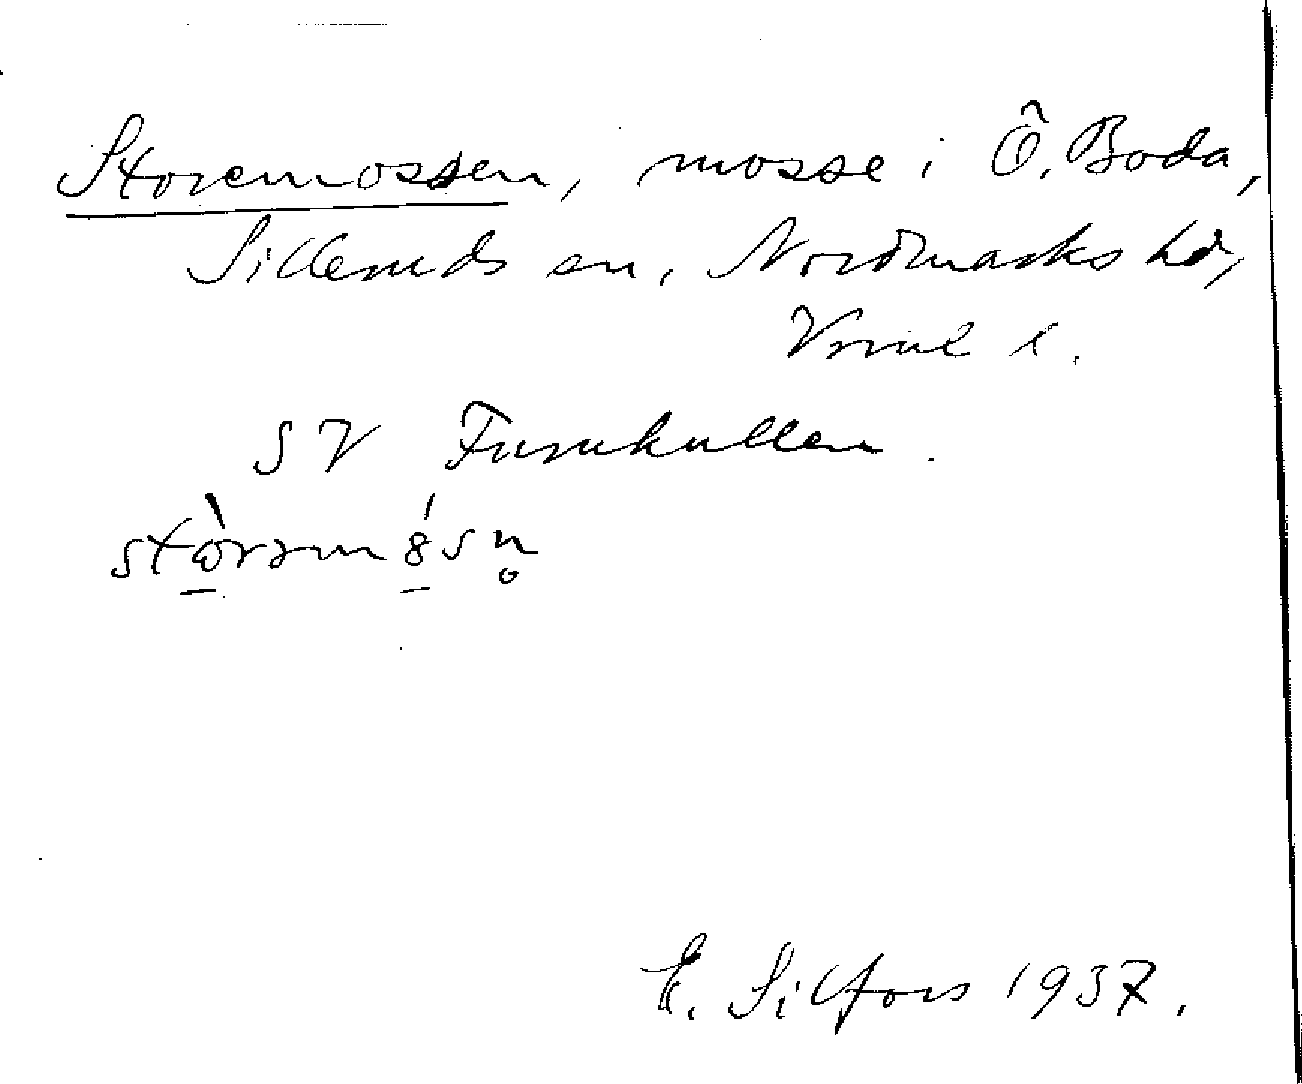 Storemossen, mosse i Ö. Boda,
Silleruds sn, Nordmarks hd,
Vrml l.
SV Furukullen.
E. Silfors 1937.